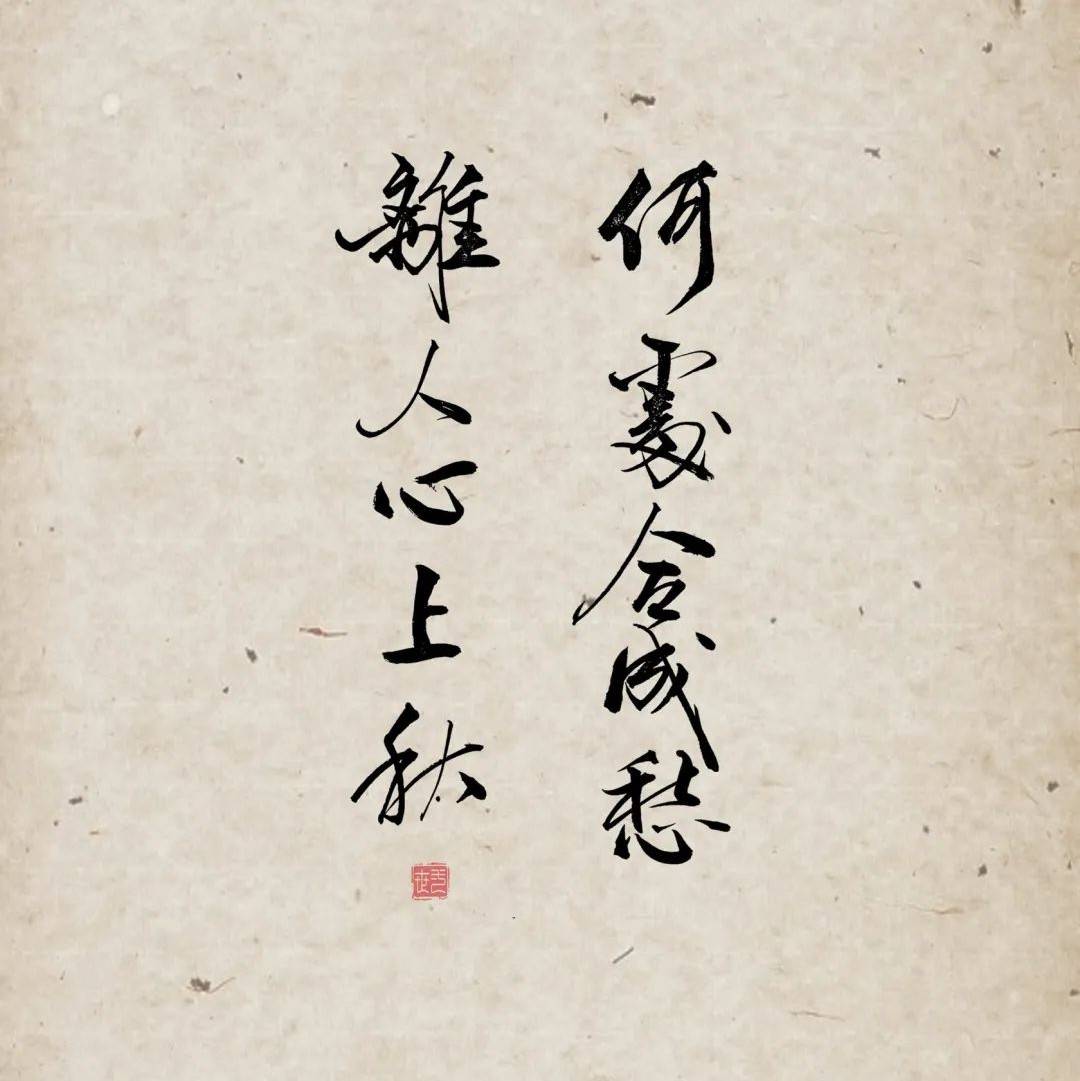 何處合成愁
離人心上秋